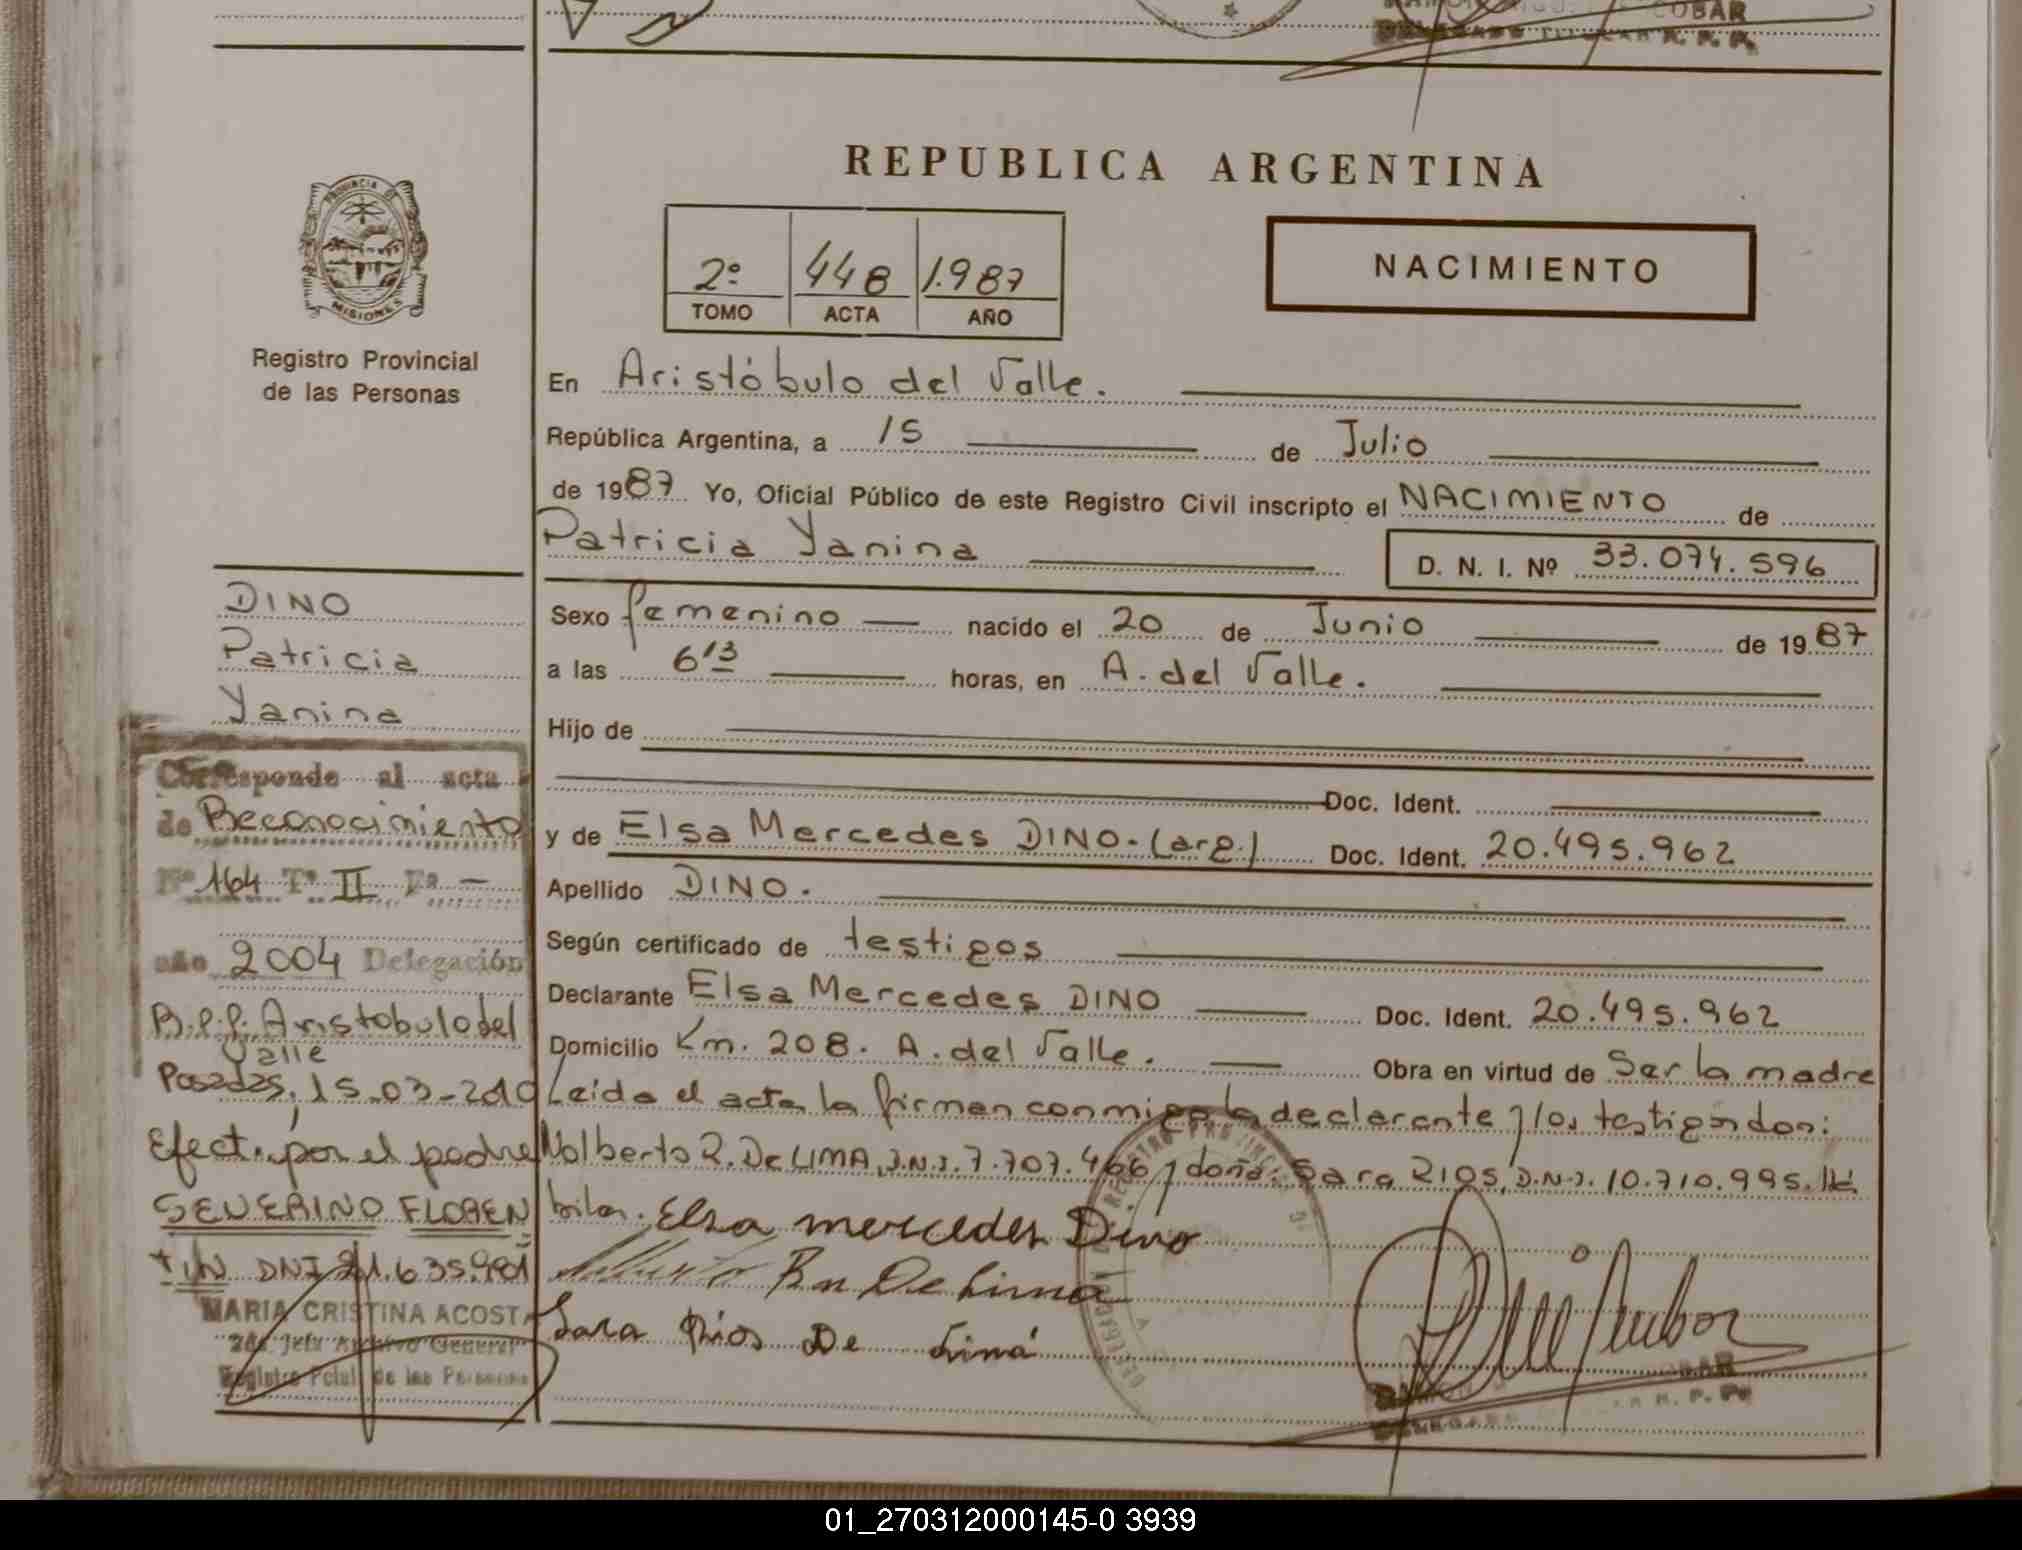 COBAR
REPUBLICA ARGENTINA
PROVINCIA DE
MISIONES
Registro Provincial
de las Personas
2º 448 1.987
TOMO ACTA AÑO
NACIMIENTO
En Aristóbulo del Valle.
República Argentina, a 15 de Julio
de 1987 Yo, Oficial Público de este Registro Civil inscripto el NACIMIENTO de
Patricia Yanina D. N. I. Nº 33.074.596
Sexo femenino nacido el 20 de Junio de 1987
a las 6'13 horas, en A. del Valle.
Hijo de
Doc. Ident.
y de Elsa Mercedes DINO.(arg.) Doc. Ident. 20.495.962
Apellido DINO.
Según certificado de testigos
Declarante Elsa Mercedes DINO Doc. Ident. 20.495.962
Domicilio Km. 208. A. del Valle. Obra en virtud de Ser la madre
Leída el acta la firman conmigo la declarante y los testigos don:
Nolberto R. De LIMA, D.N.I. 7.707.466 y doña: Sara RIOS, D.N.I. 10.710.995. Há
biles. Elsa mercedes Dino
De Lima
Sara Rios De Lima
DINO
Patricia
Yanina
Corresponde al acta
de Reconocimiento
Nº 164 Tº II Fº -
año 2004 Delegación
Aristobulo del
Valle
Posadas, 15-03-2010
Efect. por el padre
SEVERINO FLOREN
TIN DNI 21.635.901
MARIA CRISTINA ACOSTA
2da Jefa Archivo General
Registro Pcial de las Personas
01_270312000145-0 3939